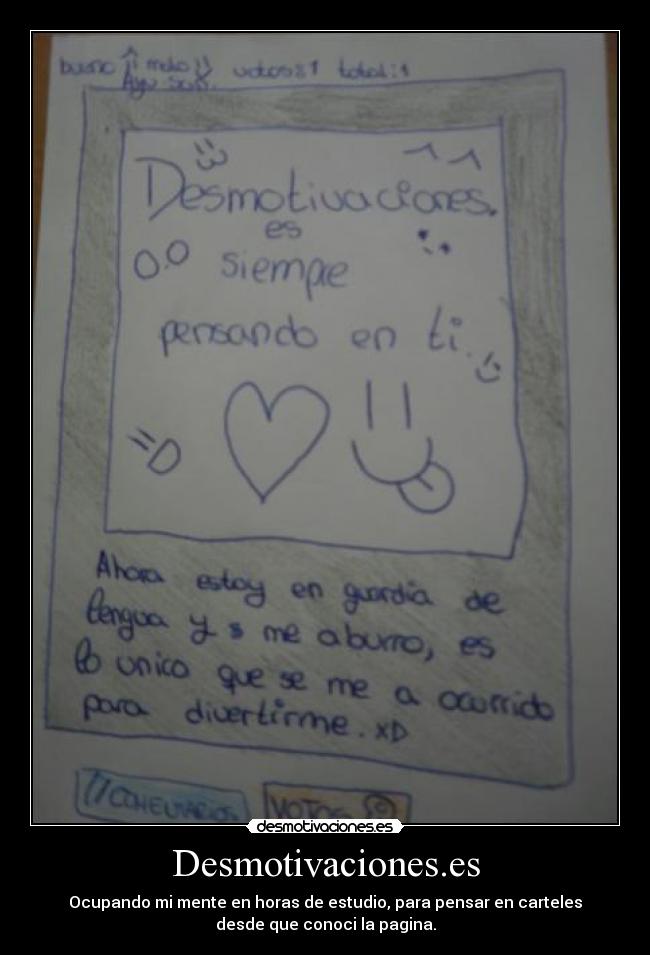 bueno malo votos:1 total:1
Desmotivaciones.
es
0.0 siempre
pensando en ti.
=D
Ahora estoy en guardia de
lengua y s me aburro, es
lo unico que se me a ocurrido
para divertirme. xD
desmotivaciones.es
Desmotivaciones.es
Ocupando mi mente en horas de estudio, para pensar en carteles
desde que conoci la pagina.